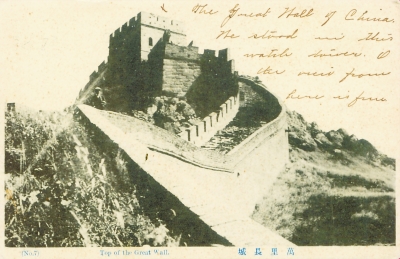 The Great Wall of China.
We stood in this
watch tower. O
the view from
here is fine
(No.7) Top of the Great Wall. 萬里長城